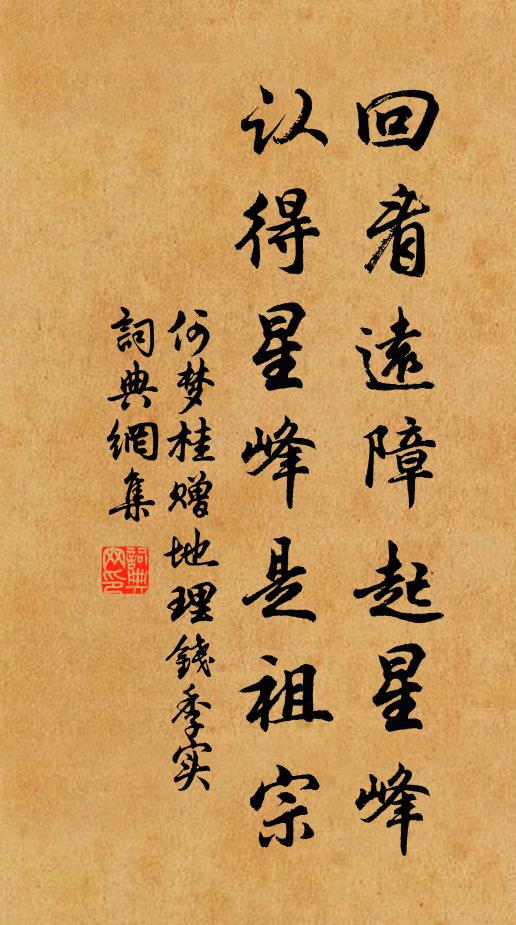 回看遠障起星峰
认得星峰是祖宗
何梦桂赠地理錢季实
詞典網集
詞典網印